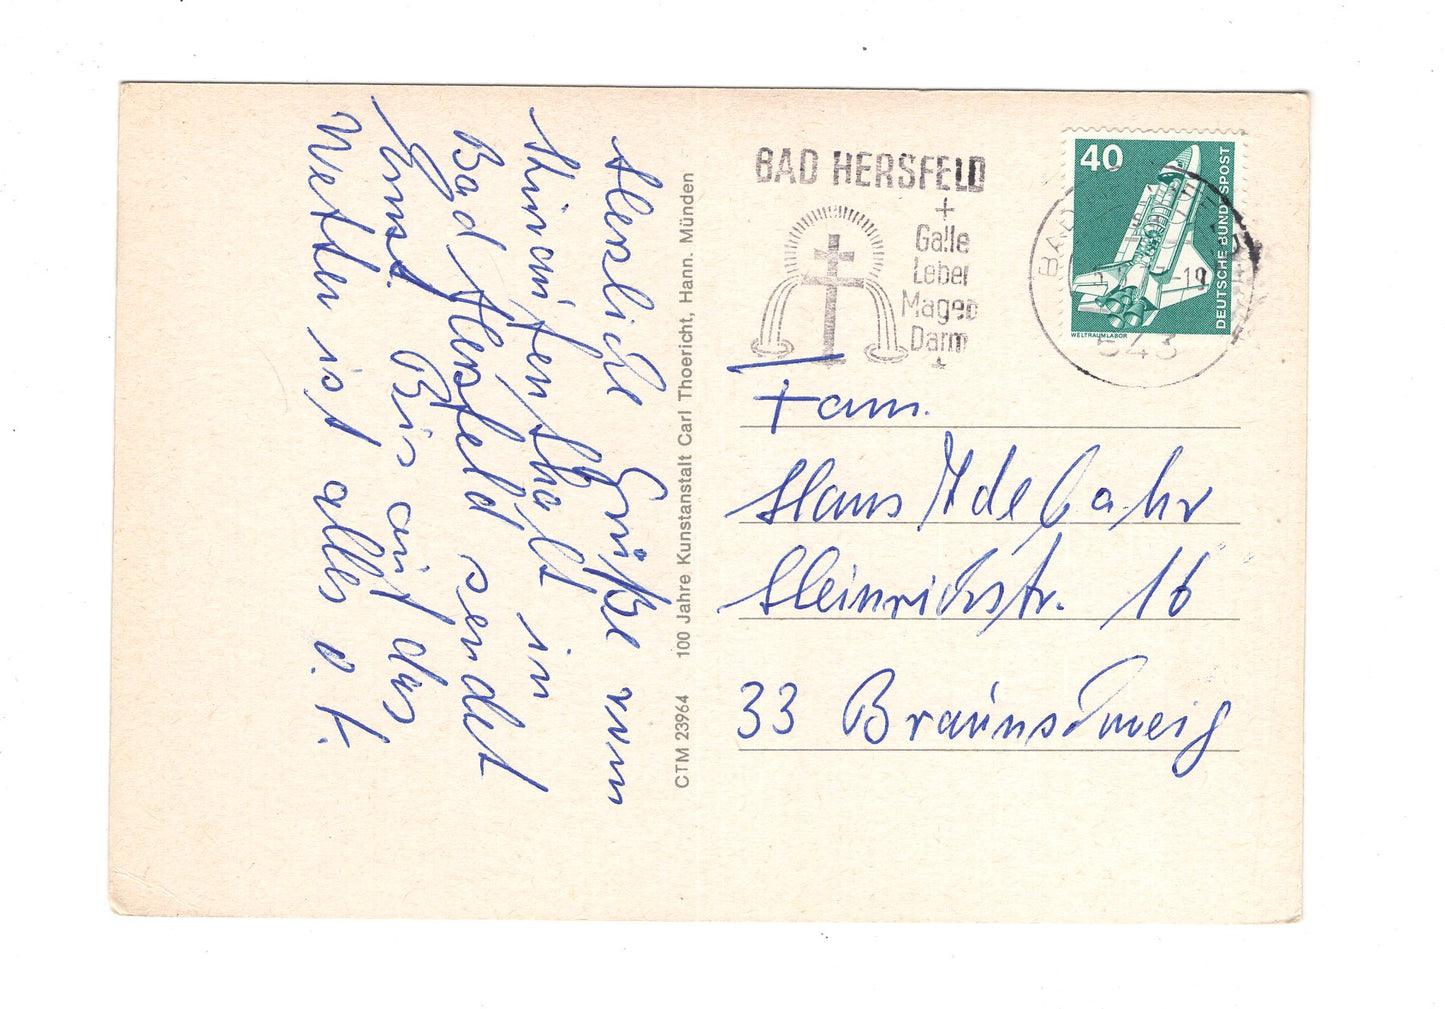 Herzliche Grüße vom
Kuraufenthalt in
Bad Hersfeld sendet
Ernst. Bis auf das
Wetter ist alles o.k.
CTM 23964 100 Jahre Kunstanstalt Carl Thoericht, Hann. Münden
BAD HERSFELD
+
Galle
Leber
Magen
Darm
+
40
DEUTSCHE BUNDESPOST
WELTRAUMLABOR
BAD
-19
643
Fam.
Hans
Heinrichstr. 16
33 Braunschweig